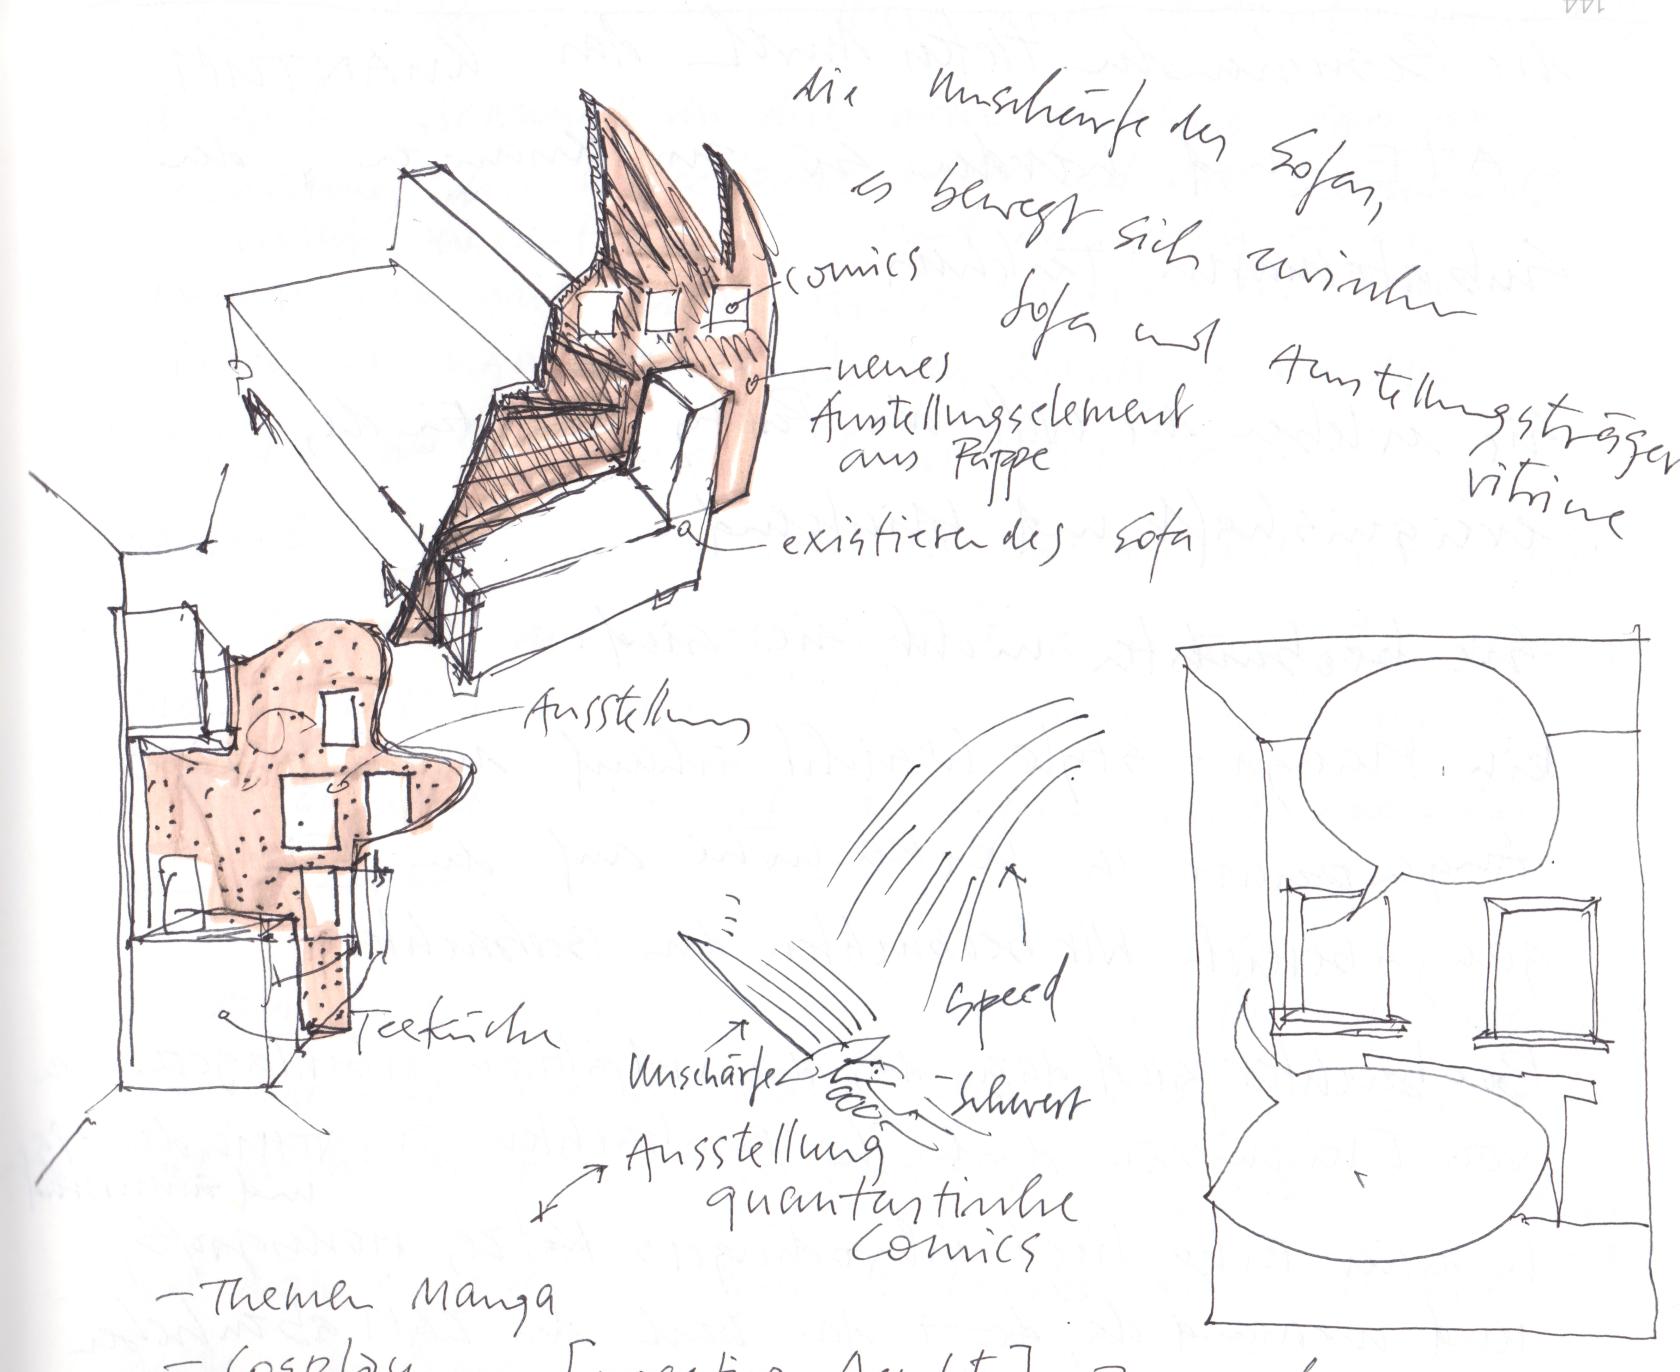 die Unschärfe des Sofas,
es bewegt sich zwischen
Sofa und Ausstellungsträger
vitrine
comics
neues
Ausstellungselement
aus Pappe
existierendes Sofa
Ausstellung
Teeküche
speed
Unschärfe
Schwert
Ausstellung
quantastische
Comics
- Themen Manga
- Cosplay
144